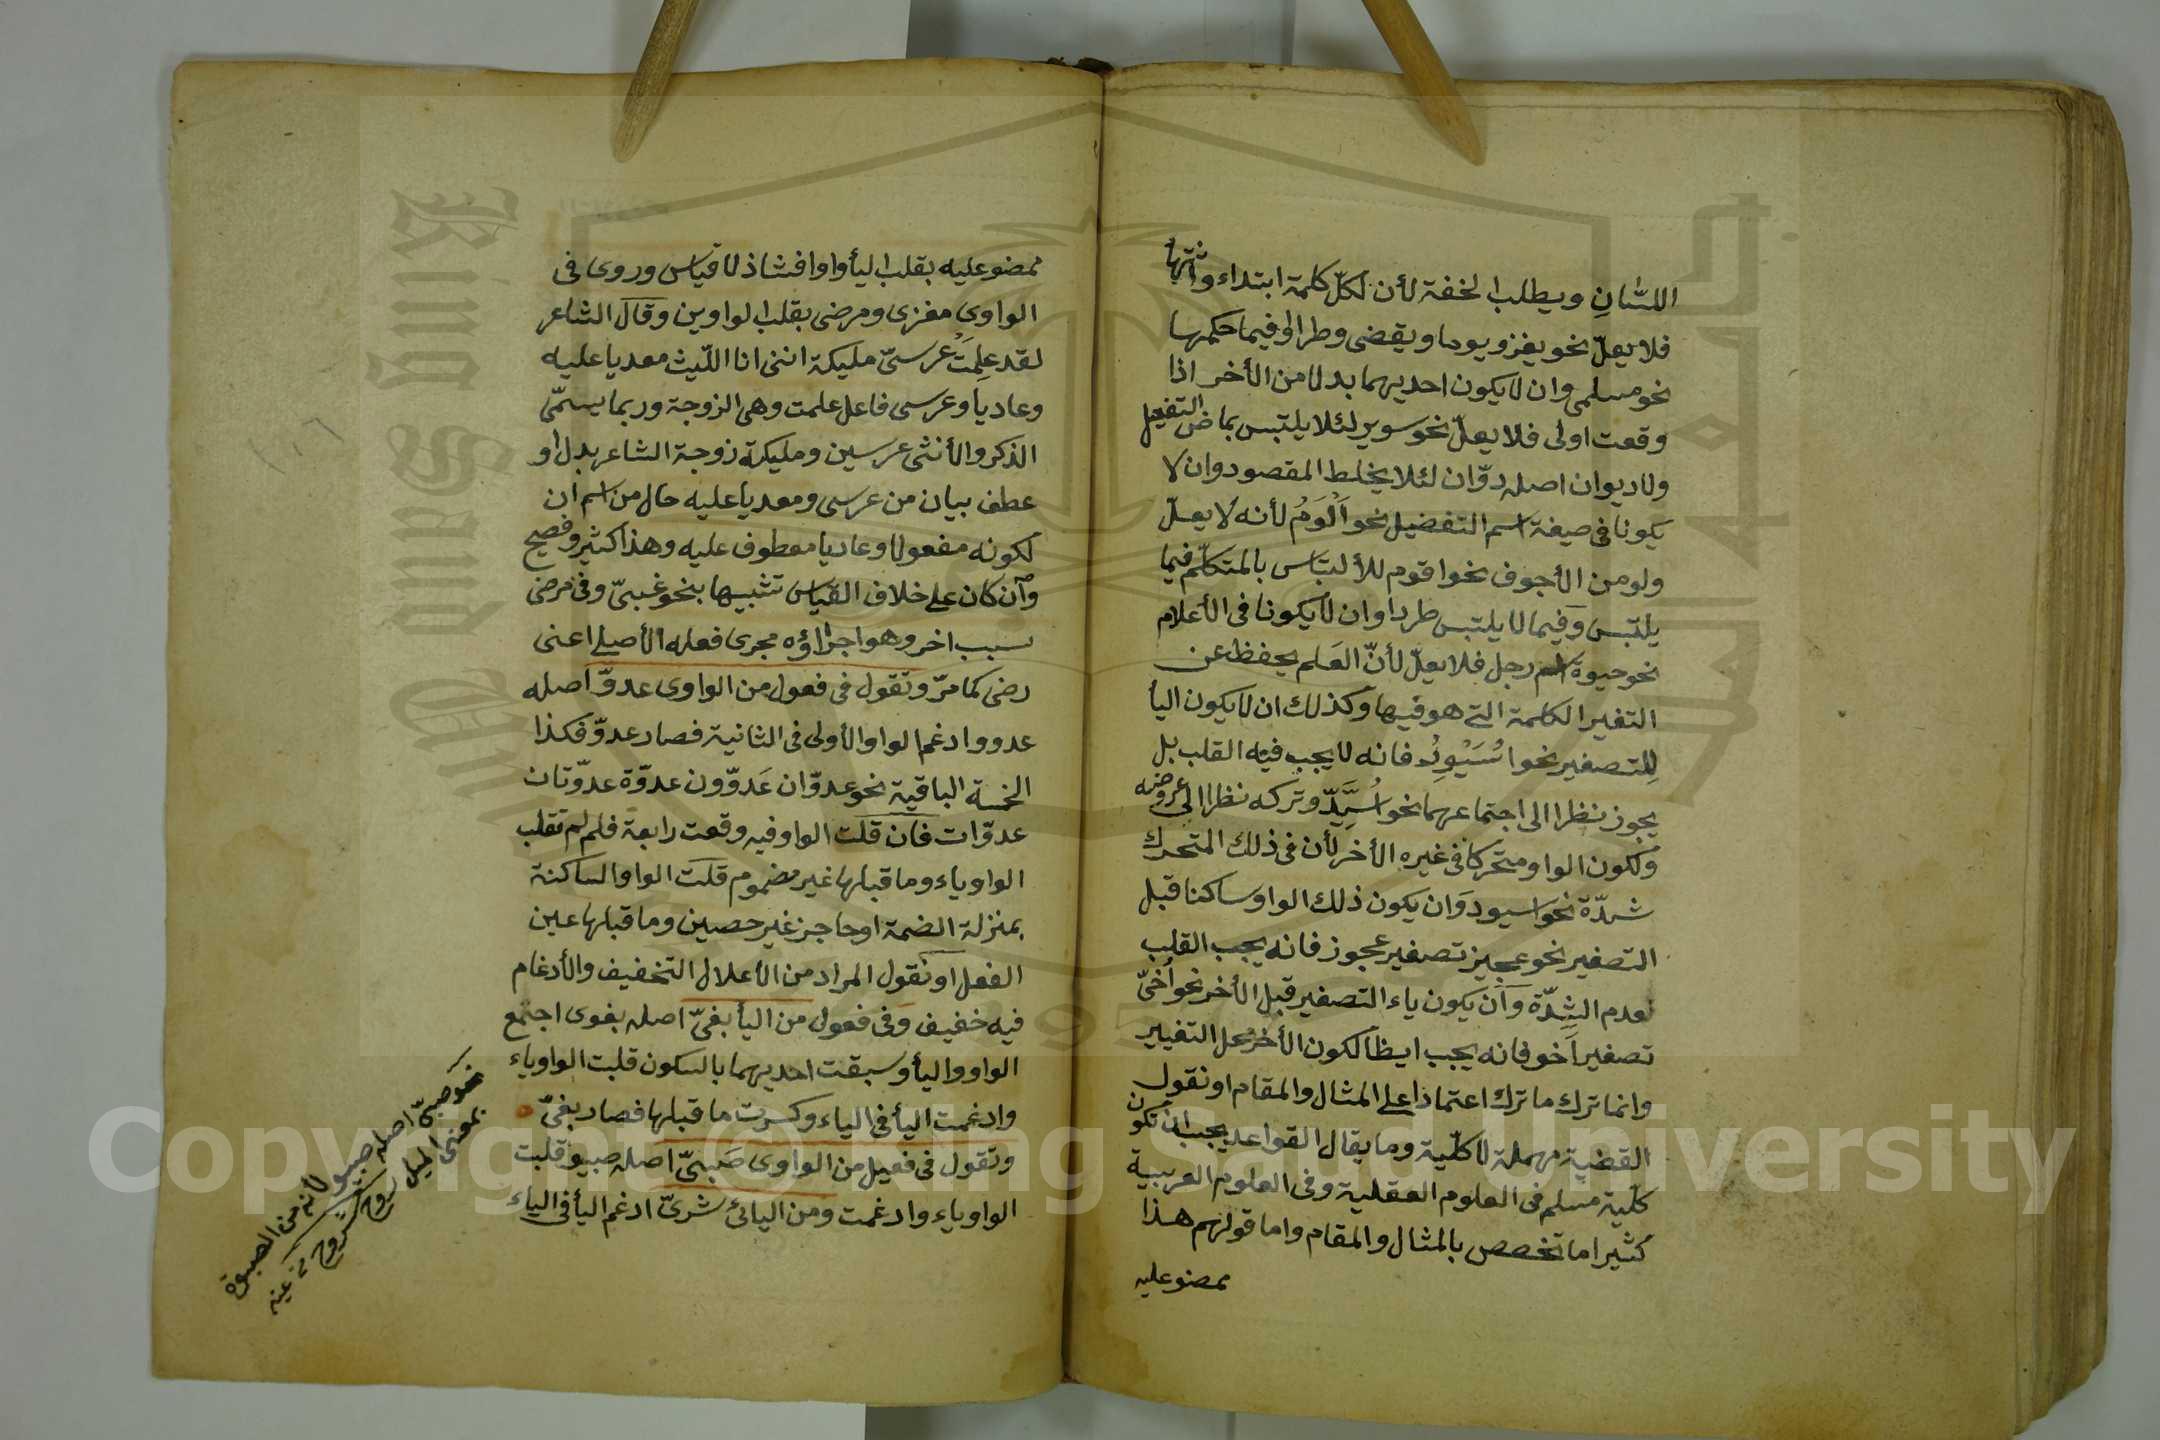 اللسان ويطلب الخفة لأن لكل كلمة ابتداء وانتهاء
فلا يعلّ نحو يغزو يوما ويقضى وطرا لو فيما حكمها
نحو مسلمى وان لا يكون احديهما بدلا من الأخر اذا
وقعت اولى فلا يعلّ نحو سوير لئلا يلتبس بماض التفعيل
ولا ديوان اصله دوّان لئلا يخلط المقصود وان لا
يكونا فى صيغة اسم التفضيل نحو اَلْوَمُ لأنه لا يعلّ
ولو من الأجوف نحو اقوم للألتباس بالمتكلّم فيما
يلتبس وفيما لا يلتبس طردا وان لا يكونا فى الأعلام
نحو حيوة اسم رجل فلا يعلّ لأنّ العَلم يحفظ عن
التغير الكلمة التى هو فيها وكذلك ان لا يكون اليأ
لِلتصغير نحو اُسَيْوِدُ فانه لا يجب فيه القلب بل
يجوز نظرا الى اجتماعهما نحو اُسَيِّدُ وتركه نظرا الى عروضه
ولكون الواو متحركا فى غيره الأخر لأن فى ذلك المتحرك
شدّة نحو اسيود وَان يكون ذلك الواو ساكنا قبل
التصغير نحو عجيز تصغير عجوز فانه يجب القلب
لعدم الشِدّة وَاَن يكون ياء التصغير قبل الأخر نحو اُخىّ
تصغير اَخو فانه يجب ايظا لكون الأخر محل التغيير
وانما ترك ما ترك اعتماذا على المثال والمقام او نقول
القضية مهملة لا كلّية وما يقال القواعد يجب ان تكون
كلّية مسلم فى العلوم العقلية وفى العلوم العربية
كثيرا ما تخصص بالمثال والمقام واما قولهم هذا
ممضو عليه
ممضو عليه بقلب اليأ واوا فشاذ لا قياس وروى فى
الواوى مغزى ومرضى بقلب الواوين وقال الشاعر
لقد علِمَتْ عرسىّ مليكة اننى انا اللّيث معديا عليه
وعاديا وعرسى فاعل علمت وهى الزوجة وربما يسمّى
الذكر والأنثى عرسين ومليكة زوجة الشاعر بدل او
عطف بيان من عرسى ومعديا عليه حال من اسم ان
لكونه مفعولا وعاديا معطوف عليه وهذا كثير وفصيح
وان كان على خلاف القياس تشبيها بنحو غبىّ وفى مرضى
سبب اخر وهو اجراؤه مجرى فعله الأصلى اعنى
رضى كما مرّ وتقول فى فعول من الواوى عدوّ اصله
عدوو وادغم الواو الأولى فى الثانية فصار عدوّ فكذا
الخمسة الباقية نحو عدوّان عَدوّون عدوّة عدوّتان
عدوّات فان قلت الواو فيه وقعت رابعة فلم لم تقلب
الواو ياء وما قبلها غير مضموم قلت الواو الساكنة
بمنزلة الضمة او حاجز غير حصين وما قبلها عين
الفعل او نقول المراد من الأعلال التخفيف والأدغام
فيه خفيف وَفى فعول من اليأ بغىّ اصله بغوى اجتمع
الواو واليأ وسبقت احديهما بالسكون قلبت الواو ياء
وادغمت اليأ فى الياء وكسرت ما قبلها فصار بغىّ
وتقول فى فعيل من الواوى صَبىّ اصله صبيو قلبت
الواو ياء وادغمت ومن اليائ شرىّ ادغم اليأ فى الياء
نحو صبىّ اصله صبيو لأنه من الصبوة
بمعنى الميل روح الشروح
Copyright © King Saud University
King Saud University
1957